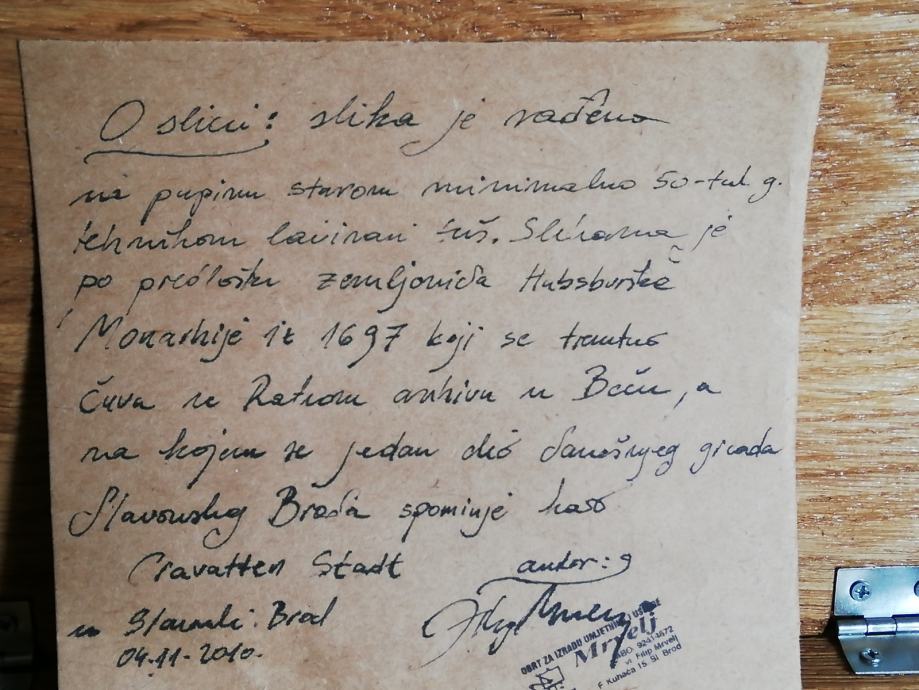 O slici: slika je rađena
na papiru starom minimalno 50-tak g.
tehnikom lavirani tuš. Slikana je
po predlošku zemljovida Habsburške
Monarhije iz 1697 koji se trenutno
čuva u Ratnom arhivu u Beču, a
na kojem se jedan dio današnjeg grada
Slavonskog Broda spominje kao
Cravatten Stadt
autor:
u Slavonski Brod
04.11.2010.
OBRT ZA IZRADU UMJETNINA I USLUGE
Mrvelj
vl. Filip Mrvelj
F Kuhača 15 Sl Brod